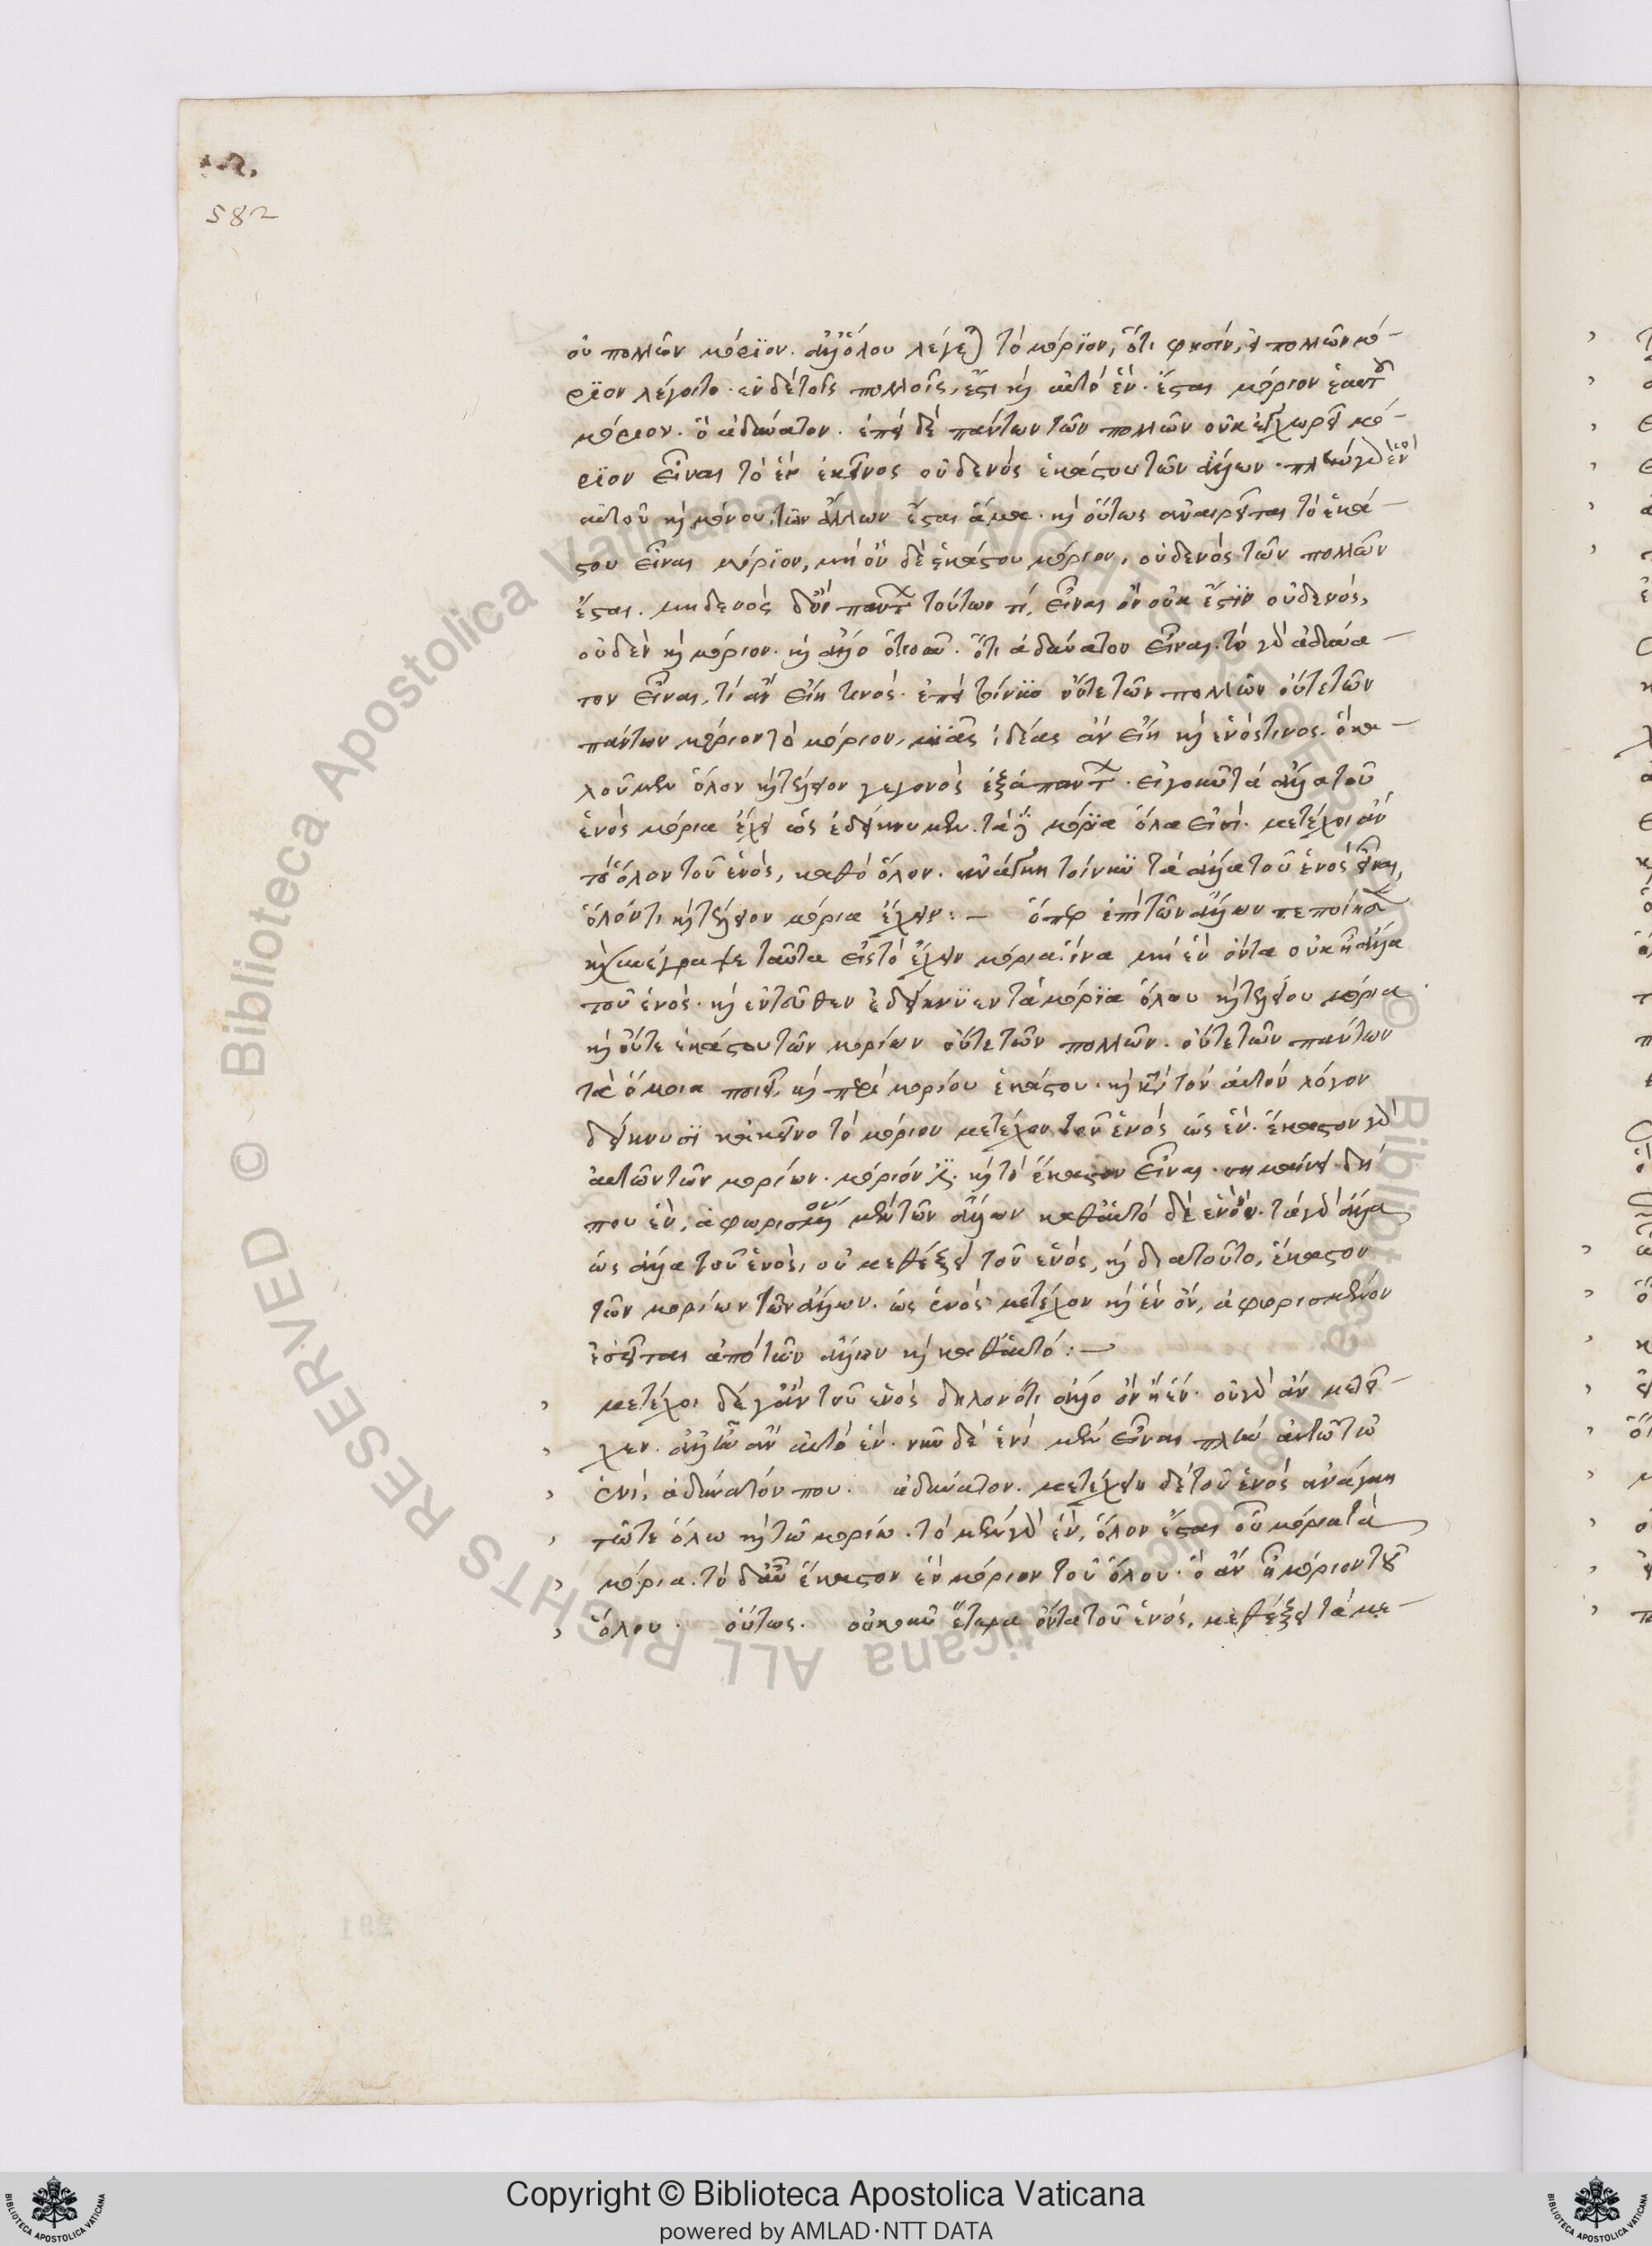 582
οὐ πολλῶν μόριον. ἀλλ' ὅλου λέγεται τὸ μόριον; ὅτι φησίν, εἰ πολλῶν μό-
ριον λέγοιτο. ἐν δὲ τοῖς πολλοῖς, ἔστι καὶ αὐτὸ ἕν. ἔσται μόριον ἑαυτοῦ
μόριον. ὃ ἀδύνατον. ἐπεὶ δὲ πάντων τῶν πολλῶν οὐκ ἐγχωρεῖ μό-
ριον εἶναι τὸ ἓν ἐκεῖνος οὐδενὸς ἑκάστου τῶν ἄλλων. πλὴν γὰρ
αὐτοῦ καὶ μόνου, τῶν ἄλλων ἔσται ἅμα. καὶ οὕτως ἀναιρεῖται τὸ ἑκά-
στου εἶναι μόριον, μὴ ὂν δὲ ἑκάστου μόριον, οὐδενὸς τῶν πολλῶν
ἔσται. μηδενὸς δ' ὂν πάντων τούτων τί, εἶναι ὧν οὐκ ἔστιν οὐδενός,
οὐδὲν καὶ μόριον. καὶ ἄλλο ὁτιοῦν. ὅτι ἀδύνατον εἶναι. τὸ γὰρ ἀδύνα-
τον εἶναι, τί ἂν εἴη τινός. ἐπεὶ τοίνυν οὔτε τῶν πολλῶν οὔτε τῶν
πάντων μόριον τὸ μόριον, μιᾶς ἰδέας ἂν εἴη καὶ ἑνός τινος. ὃ κα-
λοῦμεν ὅλον καὶ τέλειον γεγονὸς ἐξ ἁπάντων. εἰ γοῦν τὰ ἄλλα τοῦ
ἑνὸς μόρια ἔχει ὡς ἐδείκνυμεν. τὰ δὲ μόρια ὅλα εἰσί. μετέχοι ἂν
τὸ ὅλον τοῦ ἑνός, καθὸ ὅλον. ἀνάγκη τοίνυν τὰ ἄλλα τοῦ ἑνὸς εἶναι,
ὅλόν τι καὶ τέλειον μόρια ἔχειν:- ὅπερ ἐπὶ τῶν ἄλλων πεποίηται
καὶ ταῦτα εἰς τὸ ἔχειν μόρια. ἵνα μὴ ἓν ὄντα οὐκ ᾖ ἄλλα
τοῦ ἑνός. καὶ ἐντεῦθεν ἐδείκνυεν τὰ μόρια ὅλου καὶ τελείου μόρια
καὶ οὔτε ἑκάστου τῶν μορίων οὔτε τῶν πολλῶν. οὔτε τῶν πάντων
τὰ ὅμοια ποιεῖ, καὶ περὶ μορίου ἑκάστου. καὶ κατὰ τὸν αὐτὸν λόγον
δείκνυσι κἀκεῖνο τὸ μόριον μετέχον τοῦ ἑνὸς ὡς ἕν. ἕκαστον γὰρ
αὐτῶν τῶν μορίων. μόριόν ἐστι. καὶ τὸ ἕκαστον εἶναι. σημαίνει δή
που ἕν, ἀφωρισμένον μὲν τῶν ἄλλων καθ' αὑτὸ δὲ ἓν ὄν. τὰ γὰρ ἄλλα
ὡς ἄλλα τοῦ ἑνός, οὐ μεθέξει τοῦ ἑνός, καὶ διατοῦτο, ἕκαστον
τῶν μορίων τῶν ἄλλων. ὡς ἑνὸς μετέχον καὶ ἓν ὄν, ἀφωρισμένον
ἐσεῖται ἀπὸ τῶν ἄλλων καὶ καθ' αὑτό:-
μετέχοι δέ γ' ἂν τοῦ ἑνὸς δηλονότι ἄλλο ὂν ἢ ἕν. οὐ γὰρ ἂν μετεῖ-
χεν. ἀλλ' ἦν ἂν αὐτὸ ἕν. νῦν δὲ ἑνὶ μὲν εἶναι πλὴν αὐτῷ τῷ
ἑνί, ἀδύνατόν που. ἀδύνατον. μετέχειν δὲ τοῦ ἑνὸς ἀνάγκη
τῷ τε ὅλω καὶ τῷ μορίω. τὸ μὲν γὰρ ἕν, ὅλον ἔσται οὗ μόρια τὰ
μόρια. τὸ δ' αὖ ἕκαστον ἓν μόριον τοῦ ὅλου. ὃ ἂν ᾖ μόριον τοῦ
ὅλου. οὕτως. οὐκοῦν ἕτερα ὄντα τοῦ ἑνός, μεθέξει τὰ με-
Copyright © Biblioteca Apostolica Vaticana
powered by AMLAD·NTT DATA